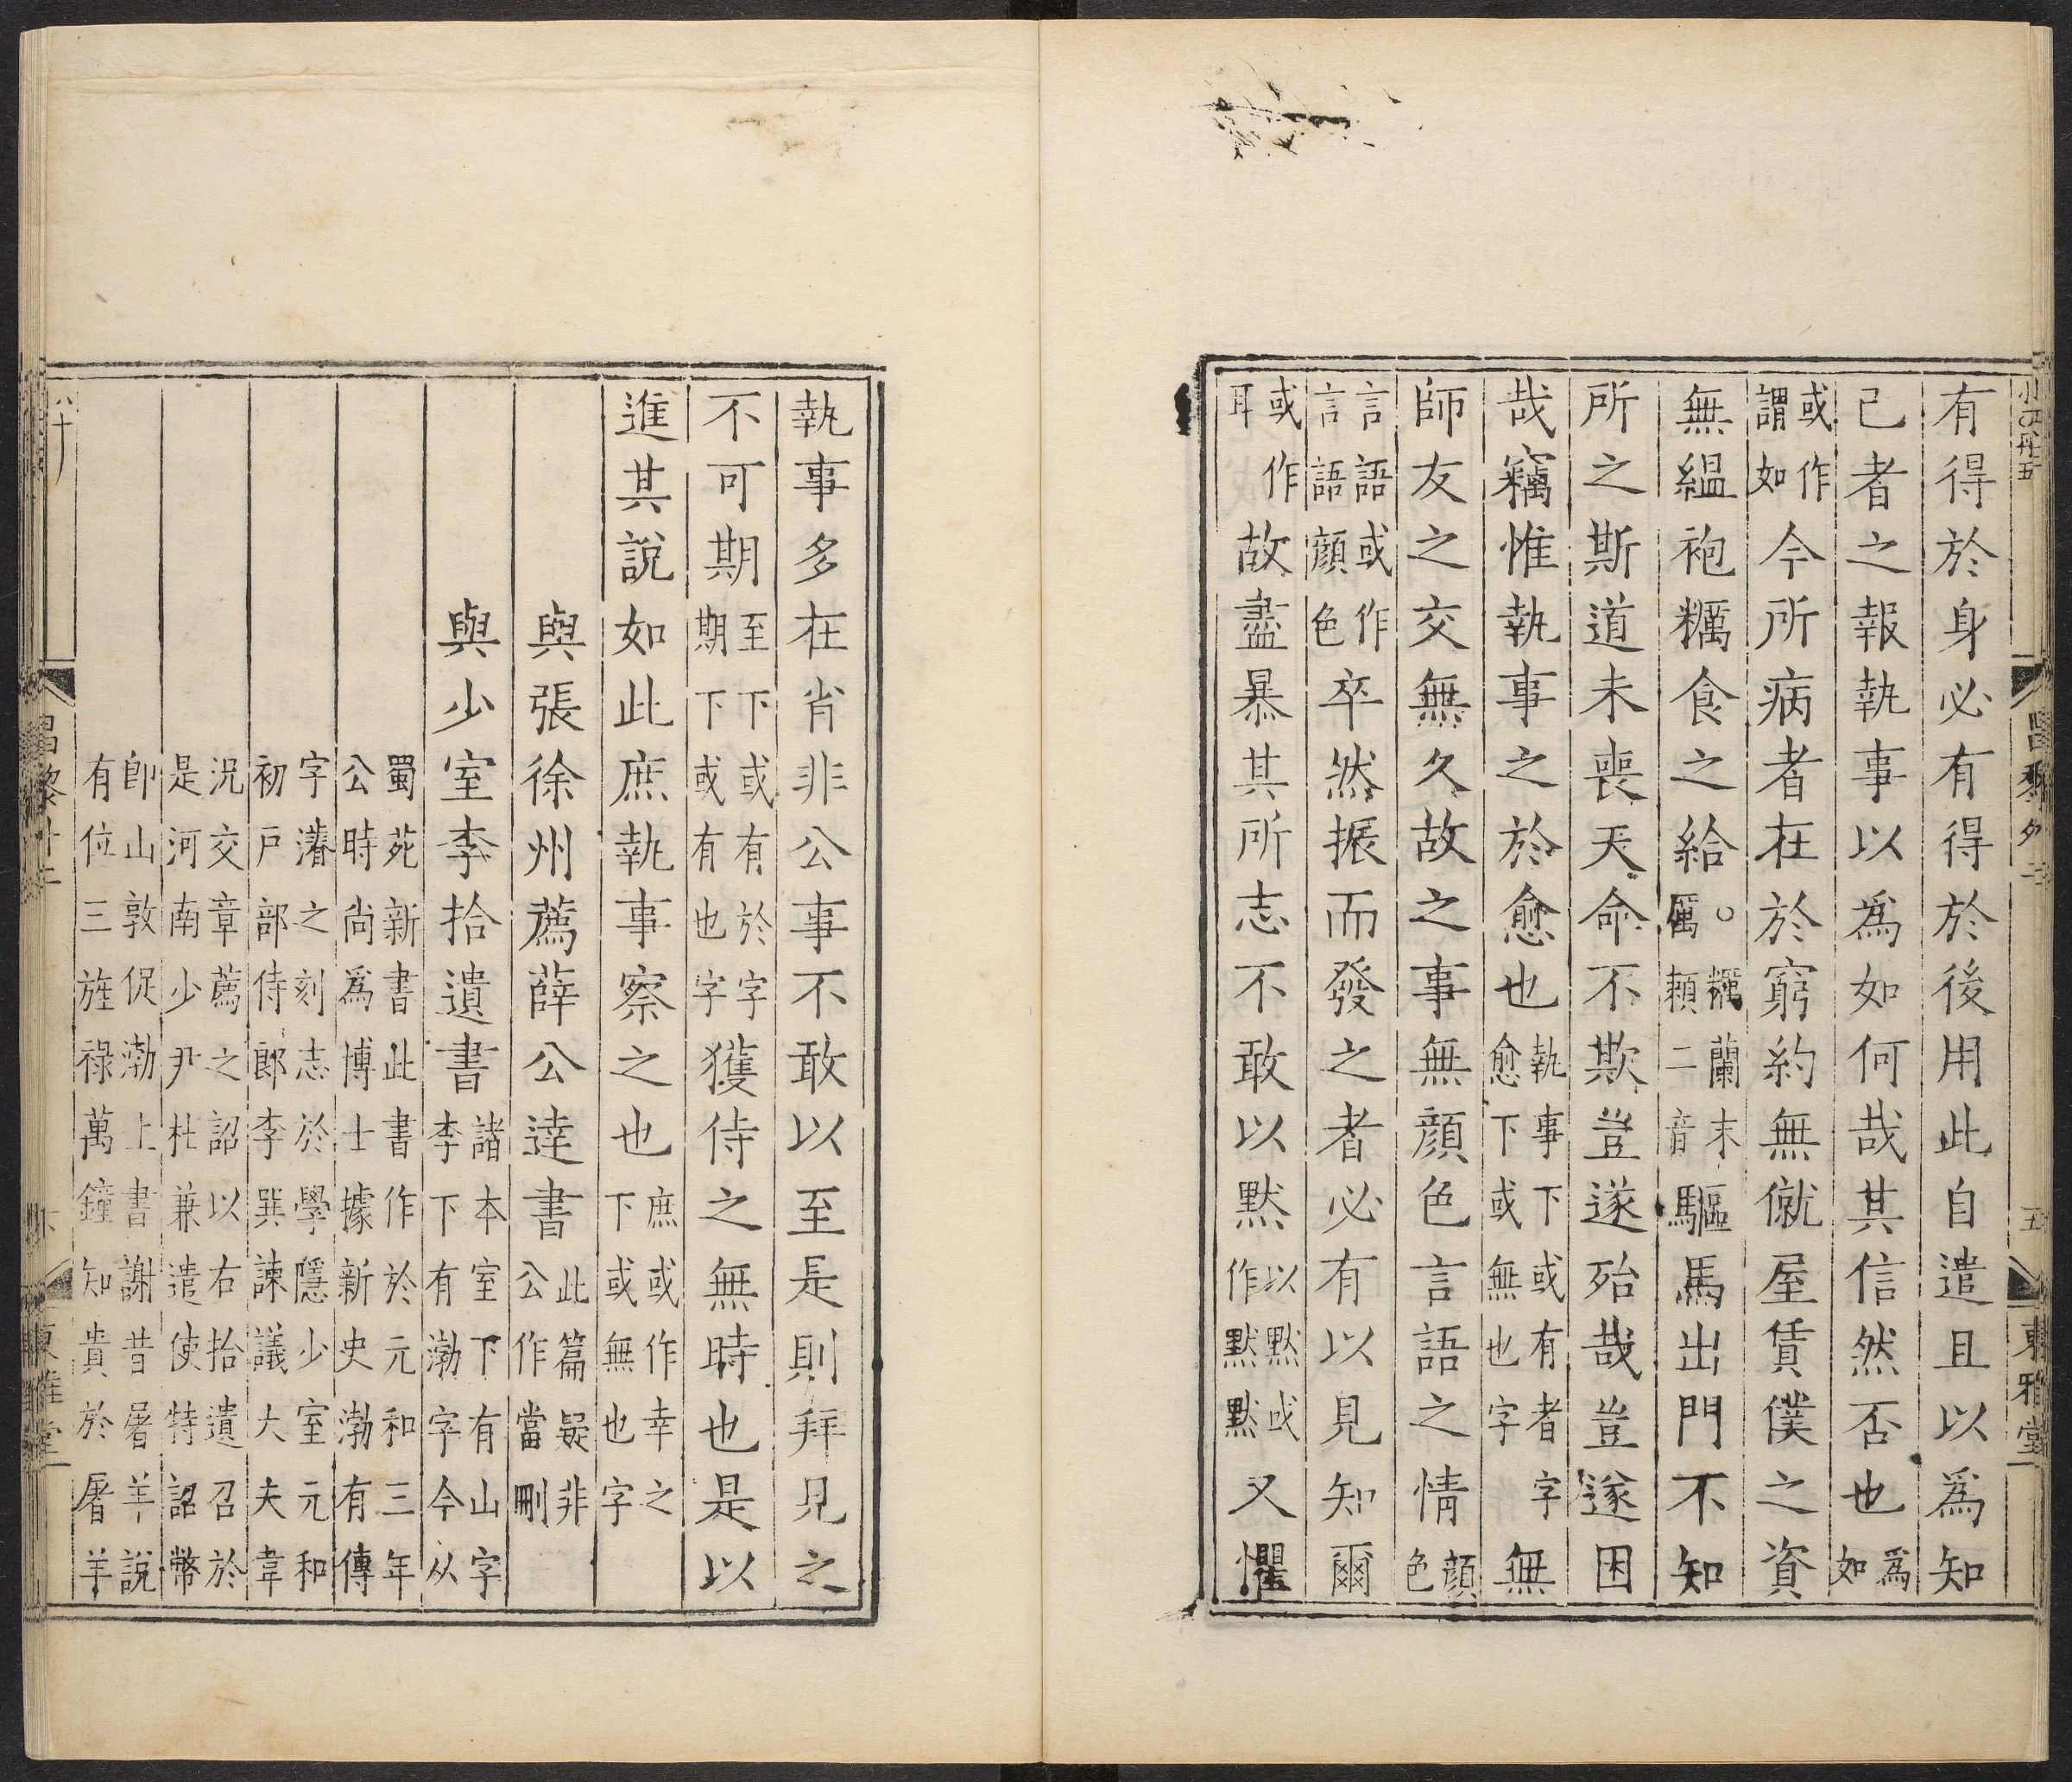 有得於身必有得於後用此自遣且以爲知
己者之報執事以爲如何哉其信然否也爲
如
或作
謂如今所病者在於窮約無僦屋賃僕之資
無縕袍糲食之給○糲蘭末
厲賴二音驅馬出門不知
所之斯道未喪天命不欺豈遂殆哉豈遂困
哉竊惟執事之於愈也執事下或有者字
愈下或無也字無
師友之交無久故之事無顏色言語之情顏
色
言語或作
言語顏色卒然振而發之者必有以見知爾
或作
耳故盡暴其所志不敢以默以默或
作默默又懼
執事多在省非公事不敢以至是則拜見之
不可期至下或有於字
期下或有也字獲侍之無時也是以
進其說如此庶執事察之也庶或作幸之
下或無也字
與張徐州薦薛公達書此篇疑非
公作當刪
與少室李拾遺書諸本室下有山字
李下有渤字今从
蜀苑新書此書作於元和三年
公時尚爲博士據新史渤有傳
字濬之刻志於學隱少室元和
初戶部侍郎李巽諫議大夫韋
況交章薦之詔以右拾遺召於
是河南少尹杜兼遣使特詔幣
即山敦促渤上書謝昔屠羊說
有位三旌祿萬鐘知貴於屠羊
東雅堂